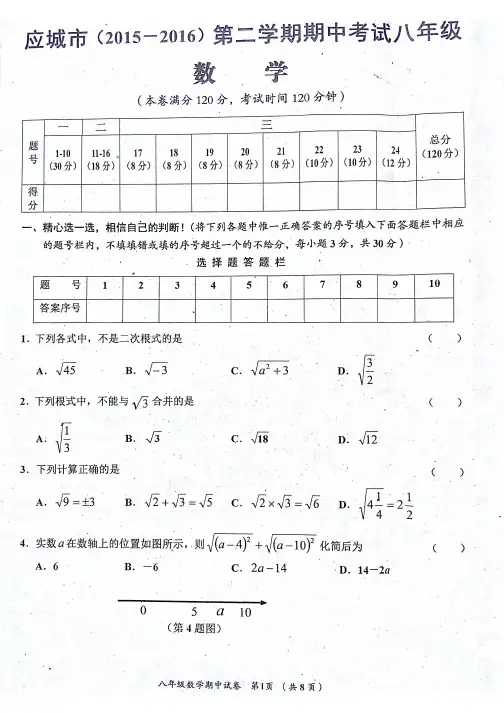 应城市（2015－2016）第二学期期中考试八年级
数 学
（本卷满分120分，考试时间120分钟）
题号 一 二 三 总分（120分）
1-10（30分） 11-16（18分） 17（8分） 18（8分） 19（8分） 20（8分） 21（8分） 22（10分） 23（10分） 24（12分）
得分
一、精心选一选，相信自己的判断！（将下列各题中惟一正确答案的序号填入下面答题栏中相应
的题号栏内，不填填错或填的序号超过一个的不给分，每小题3分，共30分）
选择题答题栏
题 号 1 2 3 4 5 6 7 8 9 10
答案序号
1．下列各式中，不是二次根式的是 （ ）
A．√45 B．√-3 C．√(a²+3) D．√(3/2)
2．下列根式中，不能与√3合并的是 （ ）
A．√(1/3) B．√3 C．√18 D．√12
3．下列计算正确的是 （ ）
A．√9=±3 B．√2+√3=√5 C．√2×√3=√6 D．√(4 1/4)=2 1/2
4．实数a在数轴上的位置如图所示，则√(a-4)²+√(a-10)² 化简后为 （ ）
A．6 B．－6 C．2a-14 D．14－2a
0 5 a 10
（第4题图）
八年级数学期中试卷 第1页 （共8页）